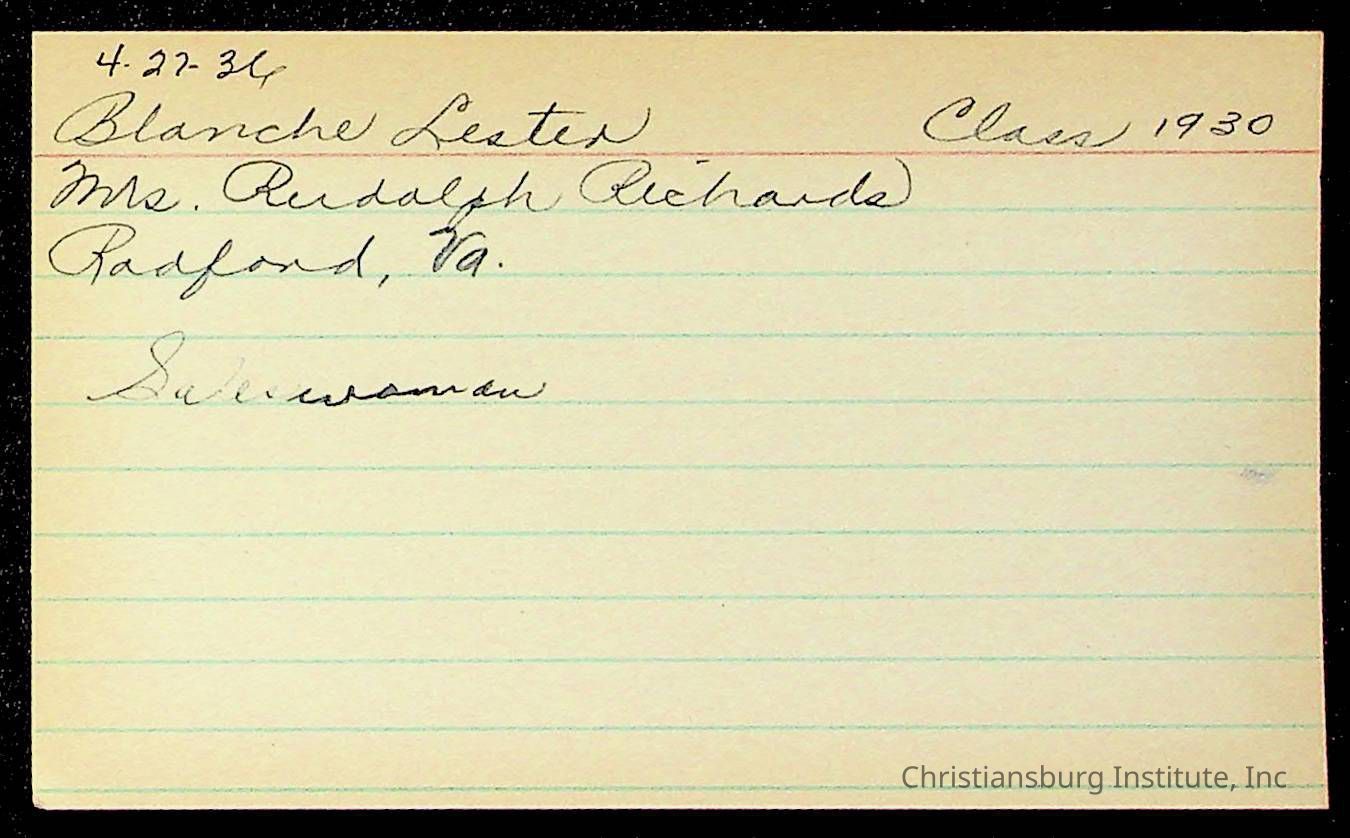 4-27-36
Blanche Lester Class 1930
Mrs. Rudolph Richards
Radford, Va.
Saleswoman
Christiansburg Institute, Inc